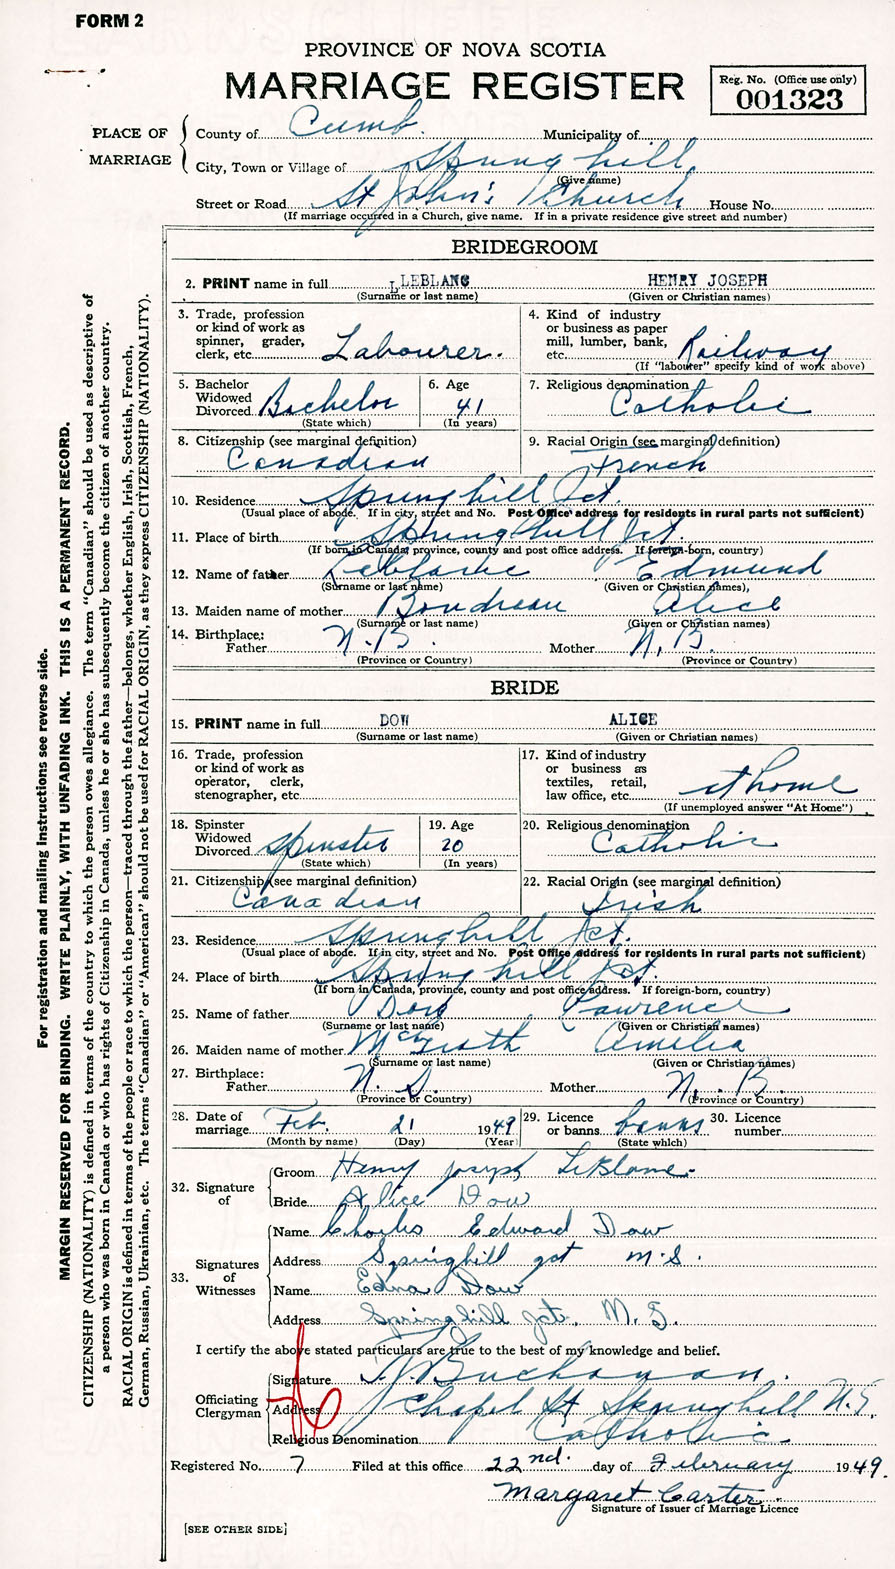 FORM 2
PROVINCE OF NOVA SCOTIA
MARRIAGE REGISTER
Reg. No. (Office use only)
001323
PLACE OF MARRIAGE
County of Cumb. Municipality of
City, Town or Village of Springhill
(Give name)
Street or Road St John's Church House No.
(If marriage occurred in a Church, give name. If in a private residence give street and number)
BRIDEGROOM
2. PRINT name in full LEBLANC HENRY JOSEPH
(Surname or last name) (Given or Christian names)
3. Trade, profession or kind of work as spinner, grader, clerk, etc. Labourer.
4. Kind of industry or business as paper mill, lumber, bank, etc. Railway
(If "labourer" specify kind of work above)
5. Bachelor Widowed Divorced Bachelor
(State which)
6. Age 41
(In years)
7. Religious denomination Catholic
8. Citizenship (see marginal definition) Canadian
9. Racial Origin (see marginal definition) French
10. Residence Springhill Jct.
(Usual place of abode. If in city, street and No. Post Office address for residents in rural parts not sufficient)
11. Place of birth Springhill Jct.
(If born in Canada, province, county and post office address. If foreign-born, country)
12. Name of father Leblanc Edmund
(Surname or last name) (Given or Christian names),
13. Maiden name of mother Boudreau Alice
(Surname or last name) (Given or Christian names)
14. Birthplace: Father N.B. Mother N.B.
(Province or Country) (Province or Country)
BRIDE
15. PRINT name in full DOW ALICE
(Surname or last name) (Given or Christian names)
16. Trade, profession or kind of work as operator, clerk, stenographer, etc.
17. Kind of industry or business as textiles, retail, law office, etc. at home
(If unemployed answer "At Home")
18. Spinster Widowed Divorced Spinster
(State which)
19. Age 20
(In years)
20. Religious denomination Catholic
21. Citizenship (see marginal definition) Canadian
22. Racial Origin (see marginal definition) Irish
23. Residence Springhill Jct.
(Usual place of abode. If in city, street and No. Post Office address for residents in rural parts not sufficient)
24. Place of birth Springhill Jct.
(If born in Canada, province, county and post office address. If foreign-born, country)
25. Name of father Dow Lawrence
(Surname or last name) (Given or Christian names)
26. Maiden name of mother McGrath Amelia
(Surname or last name) (Given or Christian names)
27. Birthplace: Father N.S. Mother N.B.
(Province or Country) (Province or Country)
28. Date of marriage Feb. 21 1949
(Month by name) (Day) (Year)
29. Licence or banns banns
(State which)
30. Licence number
32. Signature of
Groom Henry Joseph LeBlanc
Bride Alice Dow
33. Signatures of Witnesses
Name Charles Edward Dow
Address Springhill Jct N.S.
Name Edna Dow
Address Springhill Jct. N.S.
I certify the above stated particulars are true to the best of my knowledge and belief.
Officiating Clergyman
Signature Buchanan.
Address Chapel St Springhill N.S.
Religious Denomination Catholic
Registered No. 7 Filed at this office 22nd. day of February 1949.
Margaret Carter.
Signature of Issuer of Marriage Licence
[SEE OTHER SIDE]
For registration and mailing instructions see reverse side.
MARGIN RESERVED FOR BINDING. WRITE PLAINLY, WITH UNFADING INK. THIS IS A PERMANENT RECORD.
CITIZENSHIP (NATIONALITY) is defined in terms of the country to which the person owes allegiance. The term "Canadian" should be used as descriptive of
a person who was born in Canada or who has rights of Citizenship in Canada, unless he or she has subsequently become the citizen of another country.
RACIAL ORIGIN is defined in terms of the people or race to which the person—traced through the father—belongs, whether English, Irish, Scottish, French,
German, Russian, Ukrainian, etc. The terms "Canadian" or "American" should not be used for RACIAL ORIGIN, as they express CITIZENSHIP (NATIONALITY).